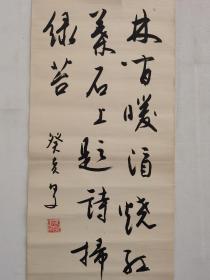 林间暖酒烧红
叶石上题诗扫
绿苔
癸亥